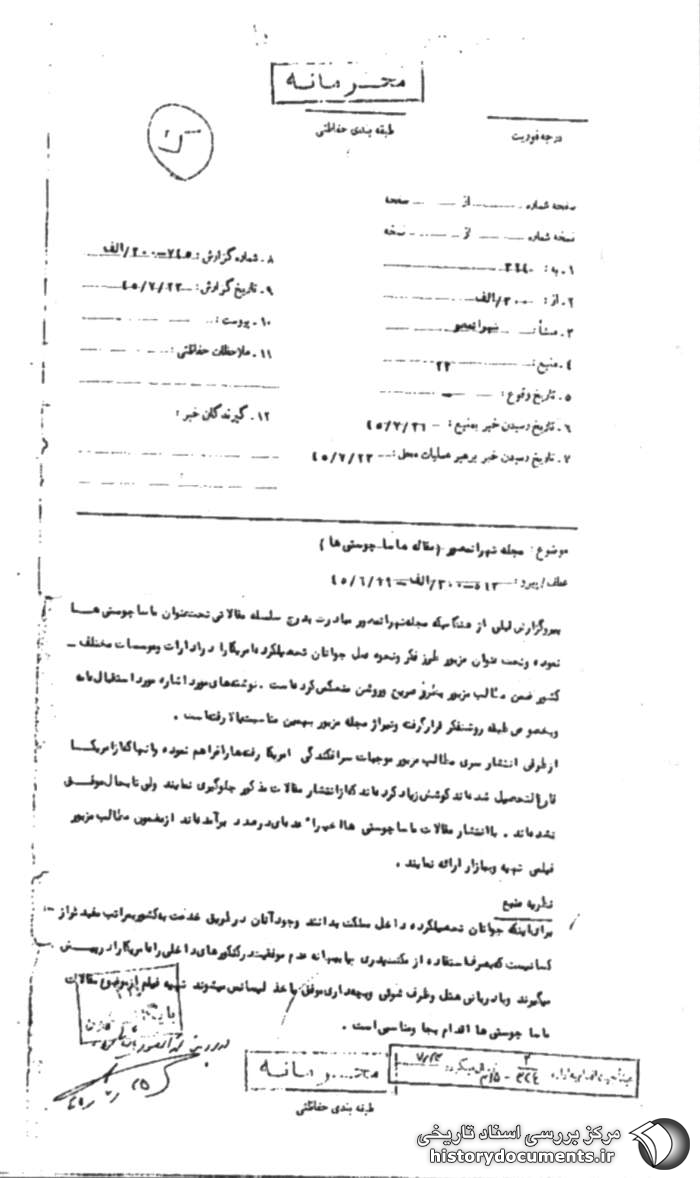 محرمانه
طبقه بندی حفاظتی
درجه فوریت
صفحه شماره از صفحه
نسخه شماره از نسخه
۱ـ به : ۳۴۱
۲ـ از : ۳۰۰/الف
۳ـ منشأ : تهرانمصور
۴ـ منبع : ۲۳
۵ـ تاریخ وقوع :
۶ـ تاریخ رسیدن خبر به منبع : ۴۵/۷/۲۱
۷ـ تاریخ رسیدن خبر برهبر عملیات محل : ۴۵/۷/۲۳
۸ـ شماره گزارش : ۷۴۵ــ۲۰۰/الف
۹ـ تاریخ گزارش : ۴۵/۷/۲۳
۱۰ـ پیوست :
۱۱ـ ملاحظات حفاظتی :
۱۲ـ گیرندگان خبر :
موضوع : مجله تهرانمصور (مقاله ماساچوستی ها )
عطف/پیرو : ۴۵/۶/۲۹
پیروگزارش قبلی از هنگامیکه مجله تهرانمصور مبادرت بدرج سلسله مقالاتی تحت عنوان ماساچوستی ها
نموده و تحت عنوان مزبور طرز فکر و نحوه عمل جوانان تحصیلکرده امریکا را در ادارات و موسسات مختلف
کشور ضمن مطالب مزبور بطرز صریح و روشن منعکس کرده است . نوشته های مورد اشاره مورد استقبال عامه
و بخصوص طبقه روشنفکر قرار گرفته و تیراژ مجله مزبور بهمین مناسبت بالا رفته است .
از طرفی انتشار سری مطالب مزبور موجبات سرافکندگی امریکا رفته ها را فراهم نموده و آنها که از امریکا
فارغ التحصیل شده اند کوشش زیاد کرده اند که از انتشار مقالات مذکور جلوگیری نمایند ولی تا بحال موفق
نشده اند . با انتشار مقالات ماساچوستی ها اخیرا" عده ای درصدد برآمده اند از مضمون مطالب مزبور
فیلمی تهیه و ببازار ارائه نمایند .
نظریه منبع
برای اینکه جوانان تحصیلکرده داخل مملکت بدانند وجود آنان در طریق خدمت به کشور بمراتب مفیدتر از
کسانیست که بصرف استفاده از مکنت پدری یا ببهانه عدم موفقیت در کنکورهای داخلی راه امریکا را در پیش
میگیرند و با دربانی هتل و ظرف شوئی و بچه داری موفق باخذ لیسانس میشوند تهیه فیلم از موضوع مقالات
ماساچوستی ها اقدام بجا و مناسبی است .
محرمانه
طبقه بندی حفاظتی
مرکز بررسی اسناد تاریخی
historydocuments.ir